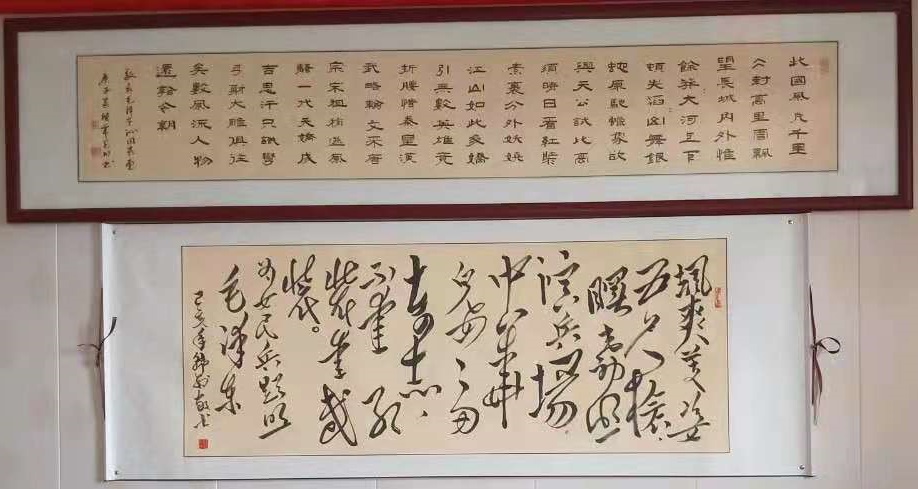 北國風光千里
冰封萬里雪飄
望長城内外惟
餘莽大河上下
頓失滔山舞銀
蛇原馳蠟象欲
與天公試比高
須晴日看紅裝
素裹分外妖嬈
江山如此多嬌
引無數英雄竞
折腰惜秦皇漢
武略輸文采唐
宗宋祖稍遜風
騷一代天驕成
吉思汗只識彎
弓射大雕俱往
矣數風流人物
還看今朝
颯爽英姿
五尺槍
曙光初照
演兵場
中華
兒女多
奇志
不愛紅
裝愛武
裝。
为女民兵题照
毛澤東
己亥年